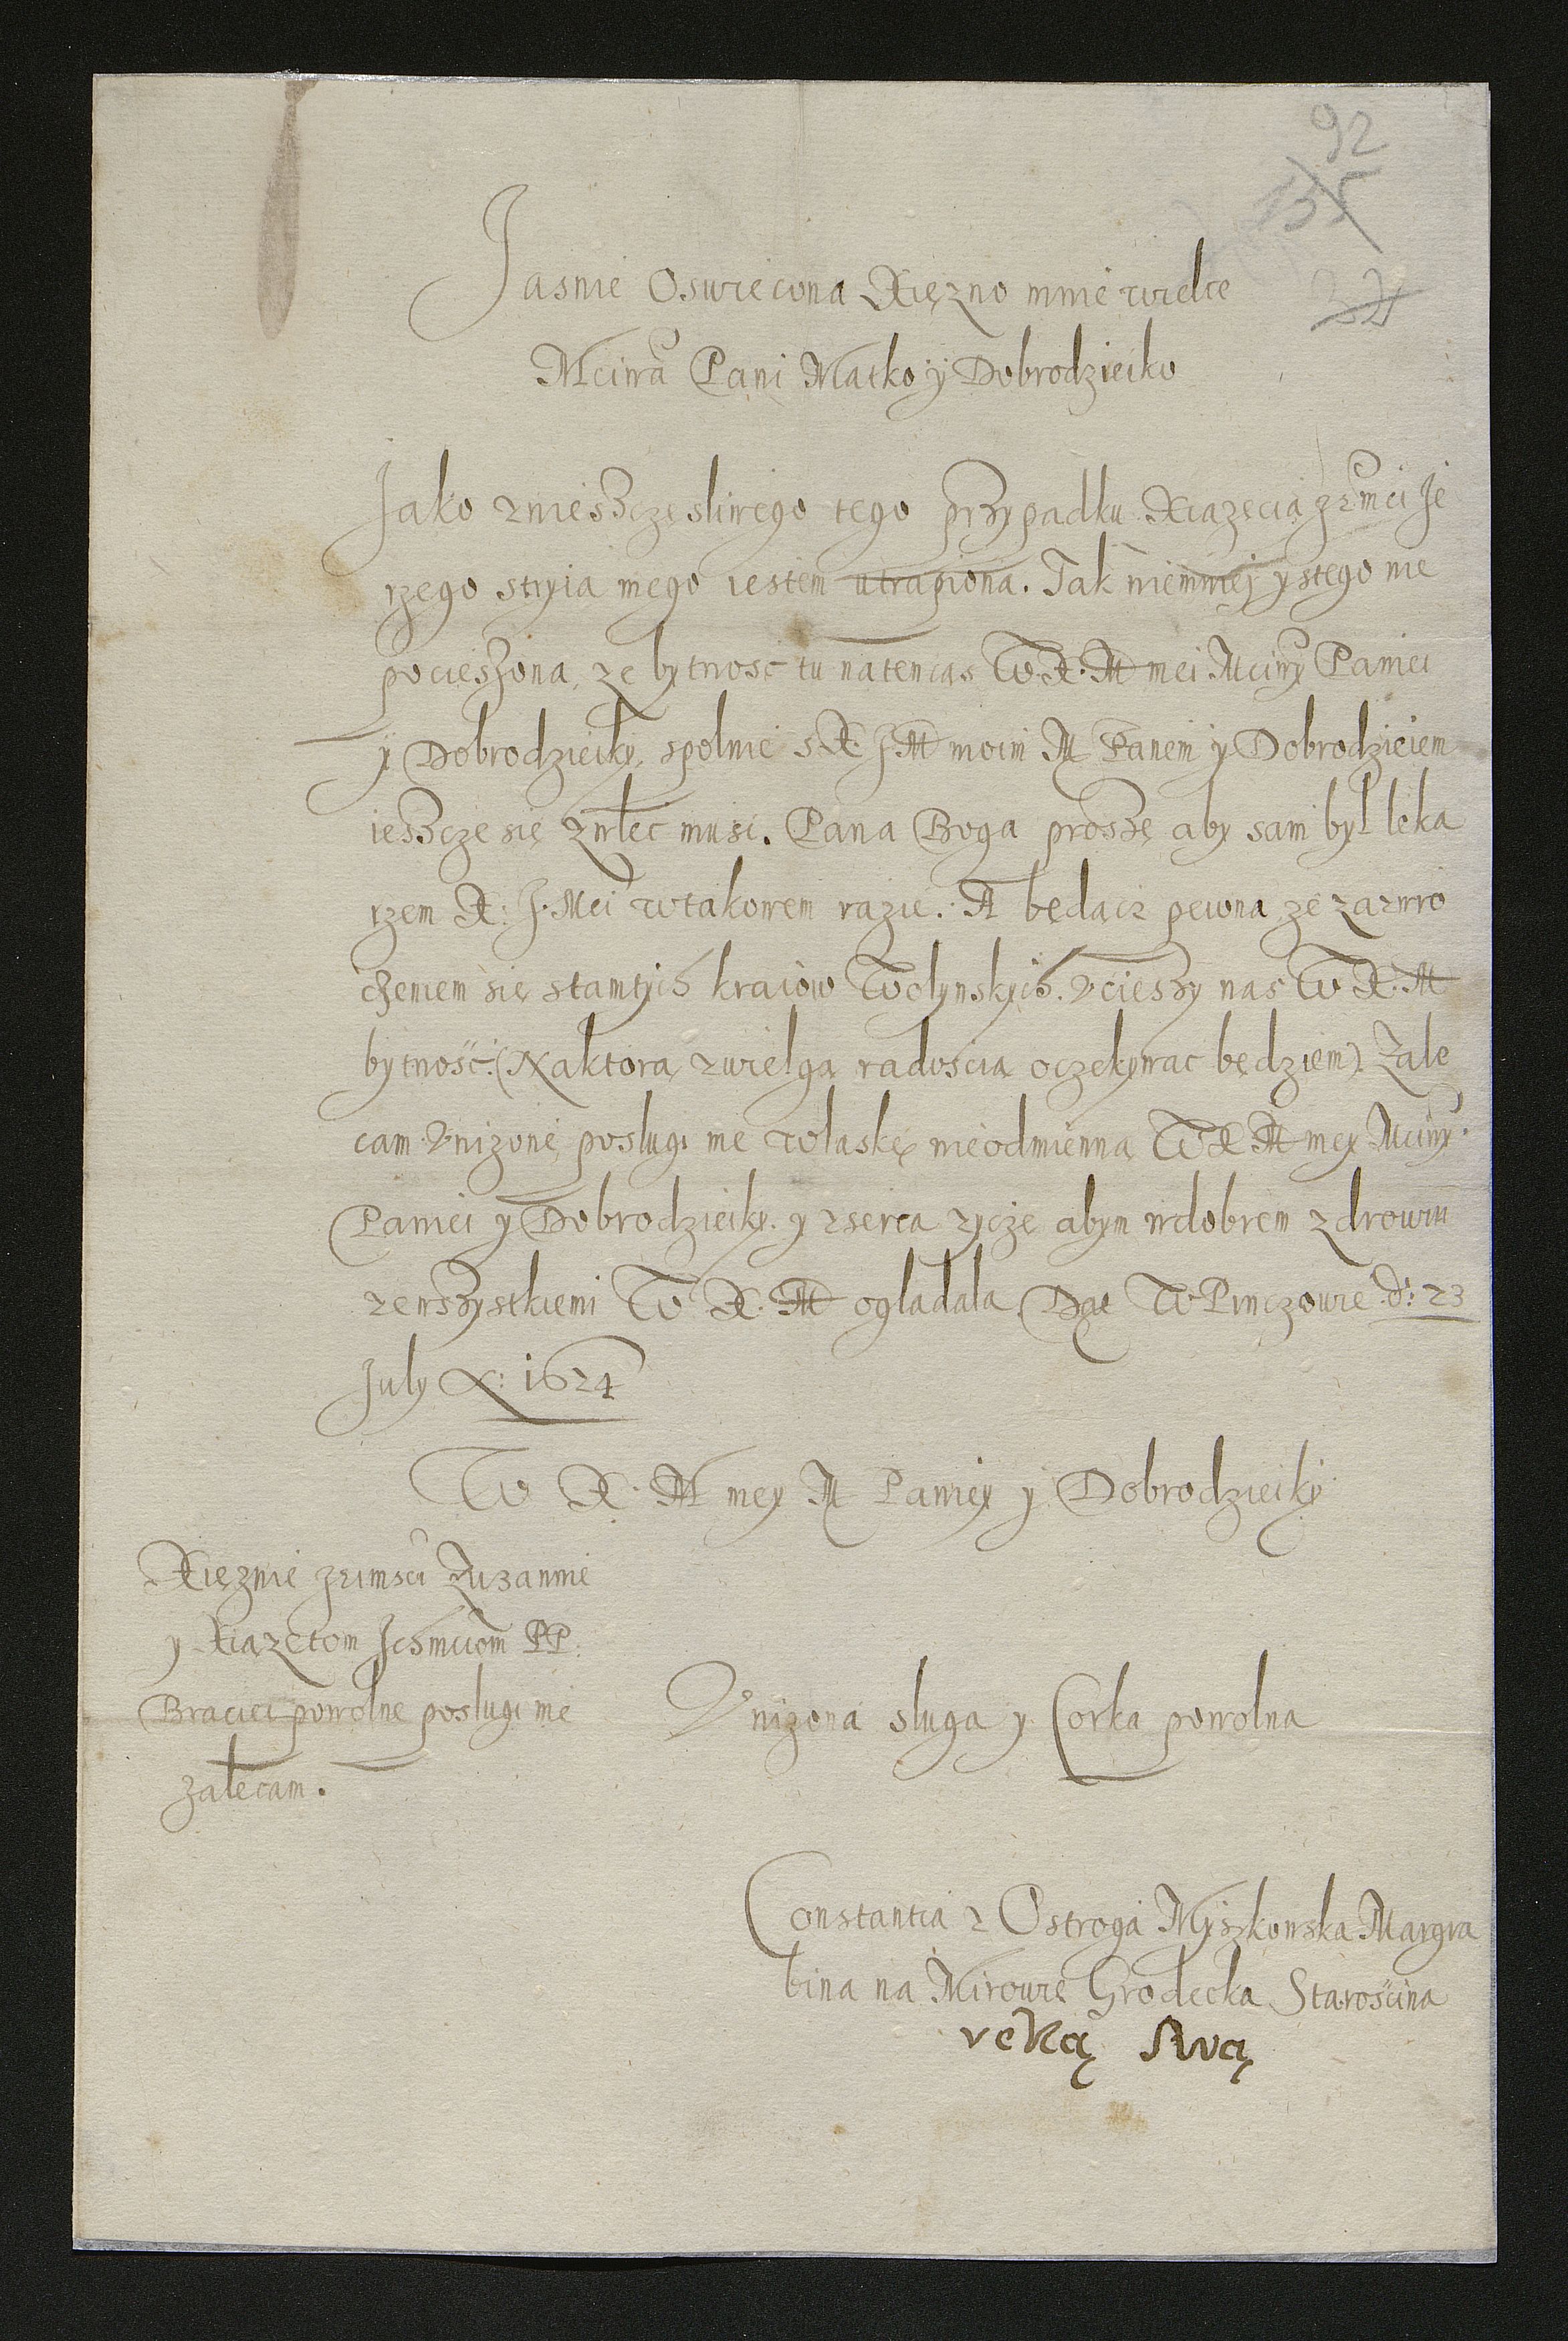 92
155
32
Jasnie Oswiecona Xięzno mnie wielce
Mciwa Pani Matko y Dobrodzieiko
Jako znieszczesliwego tego przypadku Xiazęcia Je mci Je
rzego stryia mego iestem utrapiona. Tak niemniej y stego nie
pocieszona, ze bytnosc tu natencas W. X. M mei Mciwy Paniei
y Dobrodzieiky, spolnie s X. J M moim M Panem y Dobrodzieiem
ieszcze się zwlec musi. Pana Boga proszę aby sam był leka
rzem X. J. Mci wtakowem razie. A będacz pewna ze zazwro
czeniem się stamtych kraiow Wolynskych. Vcieszy nas W X. M
bytność. (Naktora zwielga radoscia oczekywac będziem) Zale
cam Vnizone poslugi me wlaskę nieodmienna W X M mey Mciwy
Paniei y Dobrodzieiky. y zserca zycze abym wdobrem zdrowiu
zewszystkiemi W X. M ogladala Dat W Pinczowie d: 23
July A: 1624
W X. M mey M Paniey y Dobrodzieiky
Xięznie Jeimsci Zuzannie
y Xiazętom Ichmciom PP.
Braciei powolne poslugi me
zalecam.
Vnizona sluga y Corka powolna
Constantia z Ostroga Myszkowska Margra
bina na Mirowie Grodecka Starościna
ręką swą